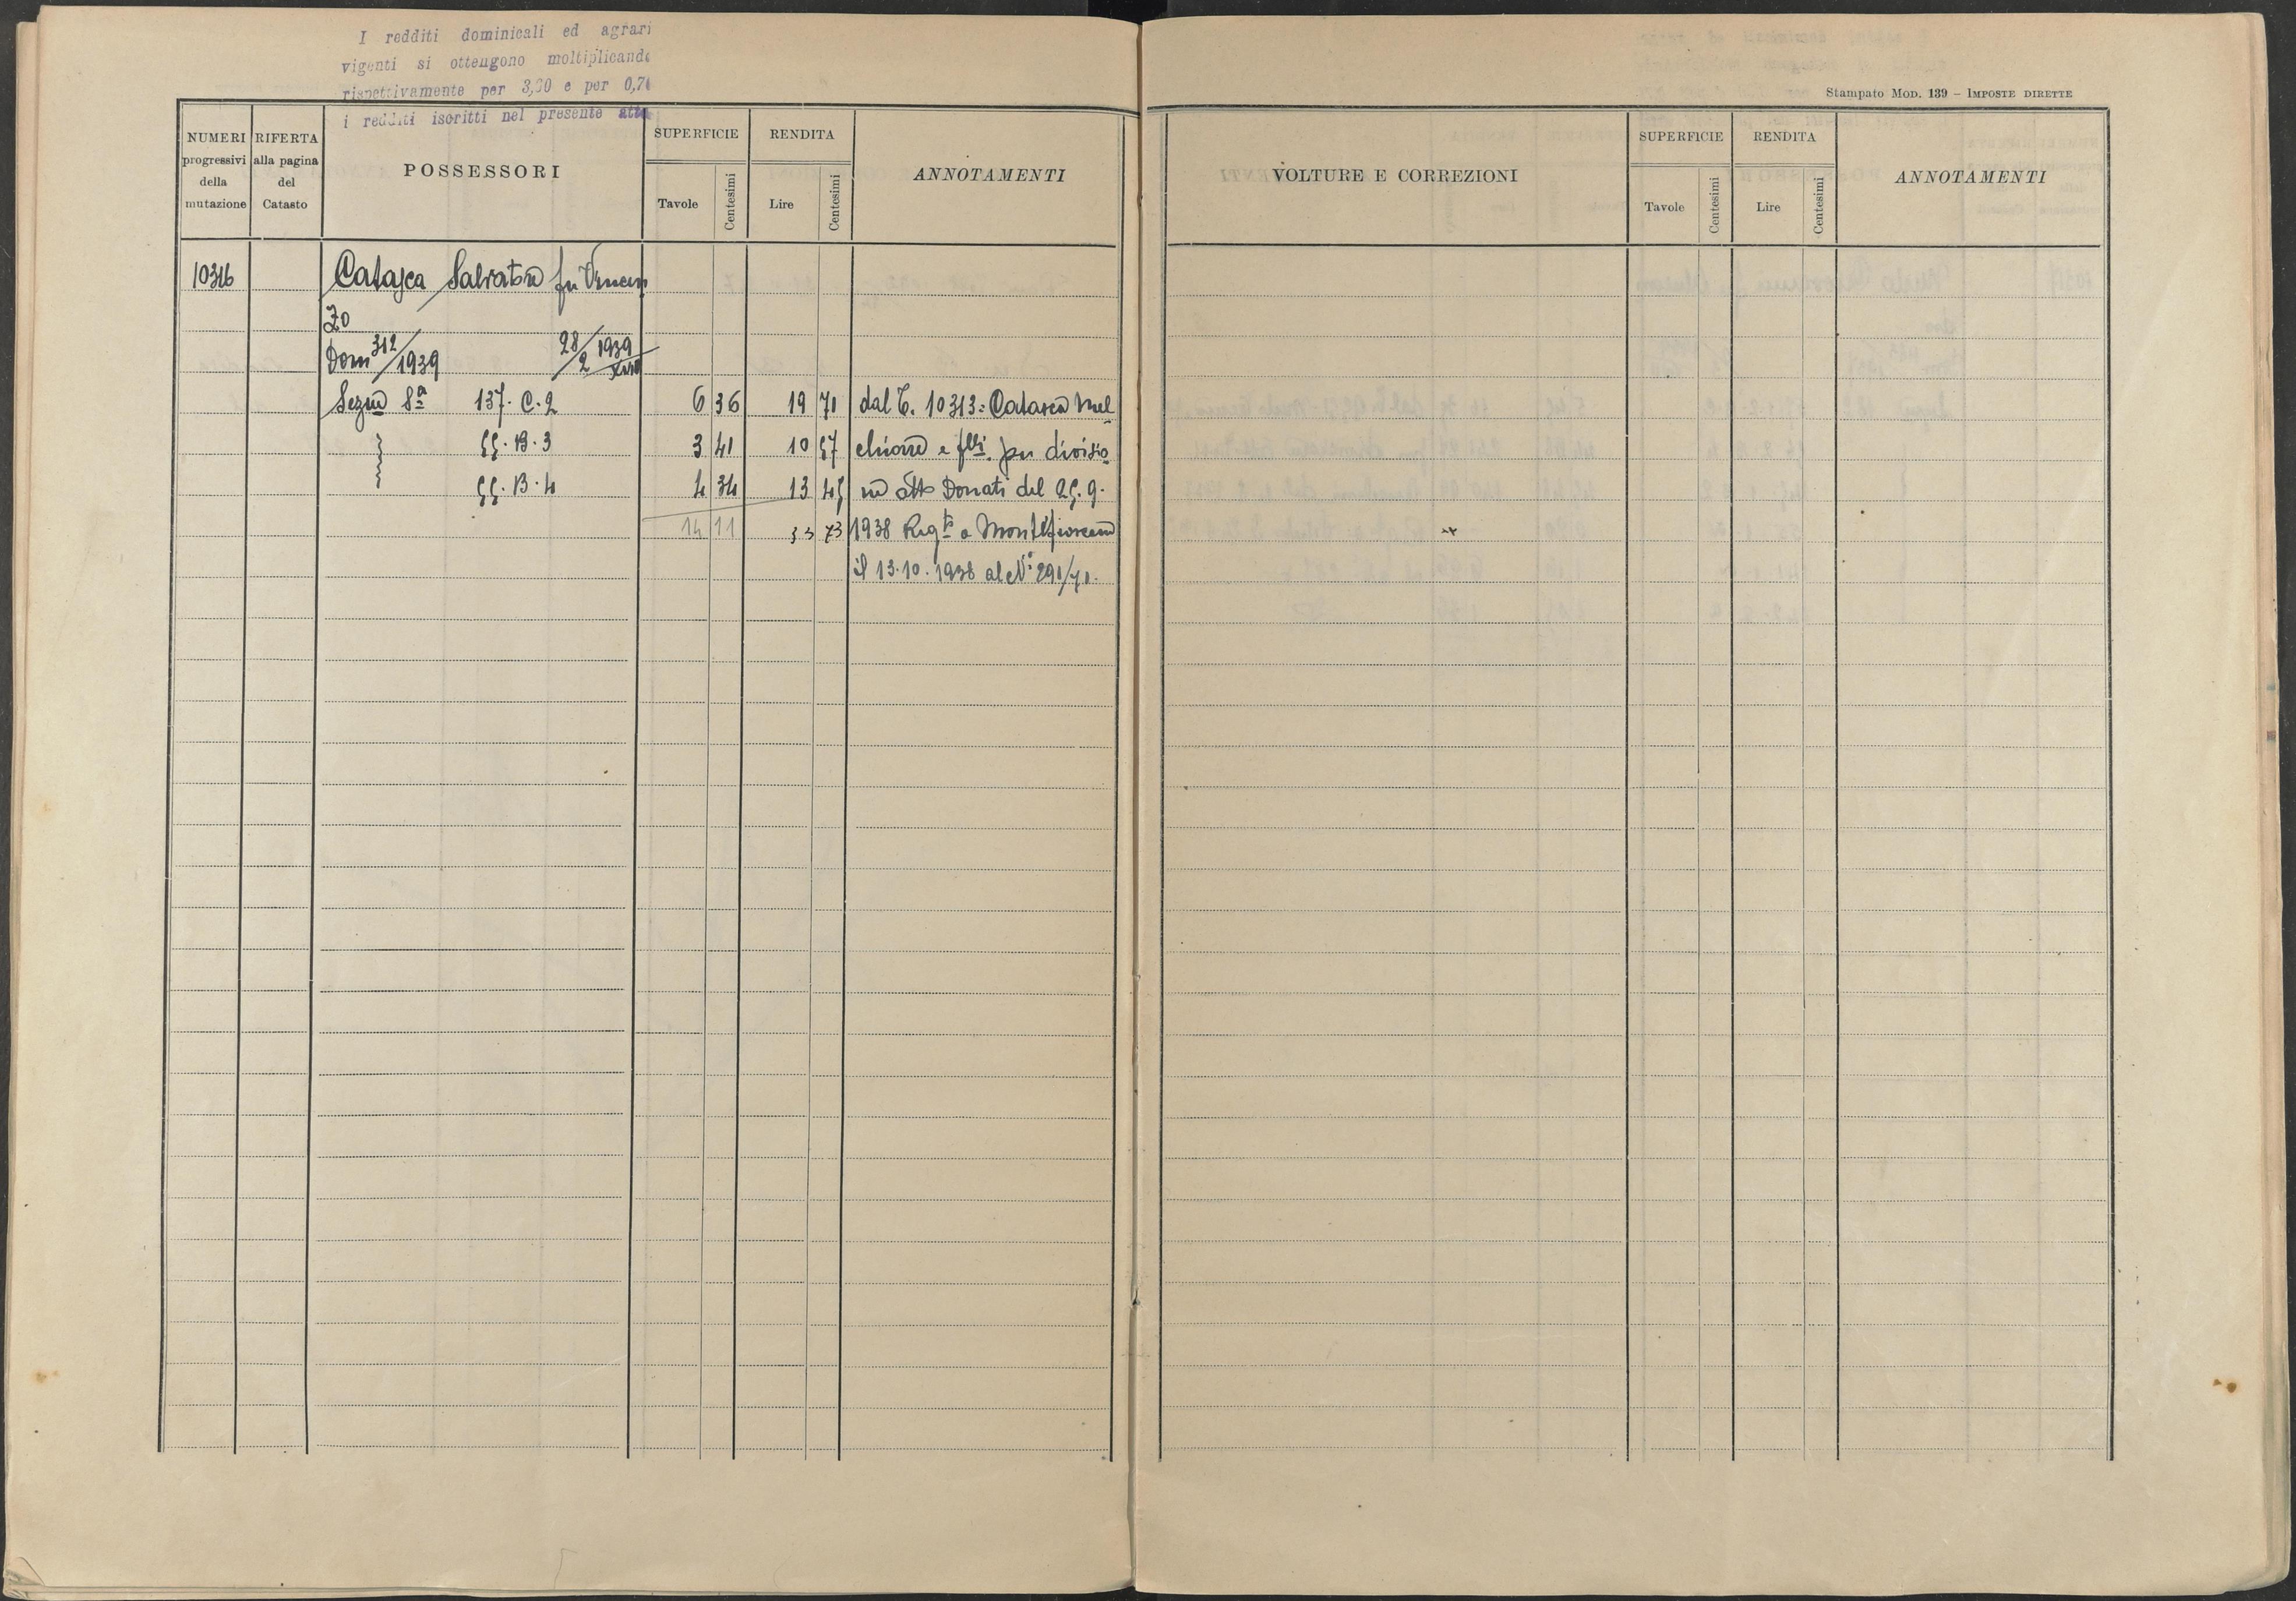 I redditi dominicali ed agrari
vigenti si ottengono moltiplicando
rispettivamente per 3,60 e per 0,74
i redditi iscritti nel presente atto
Stampato Mod. 139 – Imposte dirette
NUMERI progressivi della mutazione
RIFERTA alla pagina del Catasto
POSSESSORI
SUPERFICIE
Tavole
Centesimi
RENDITA
Lire
Centesimi
ANNOTAMENTI
VOLTURE E CORREZIONI
SUPERFICIE
Tavole
Centesimi
RENDITA
Lire
Centesimi
ANNOTAMENTI
10316 Salvatore fu Vincen
zo
Dom 312/1939 28/2 1939 XVII
Sezne 8ª 137. C. 2 6 36 19 71 dal C. 10313= Mel
55. B. 3 3 41 10 57 chiorre e flli. per divisio
55. B. 4 4 34 13 45 ne atto Donati del 25. 9.
14 11 33 73 1938 Regto a
il 13.10.1938 al N° 291/71.